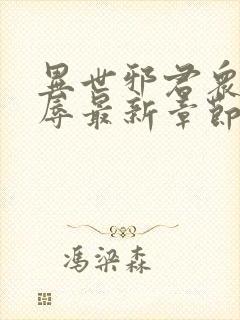 異世邪君衆
辱最新章節
馮梁森